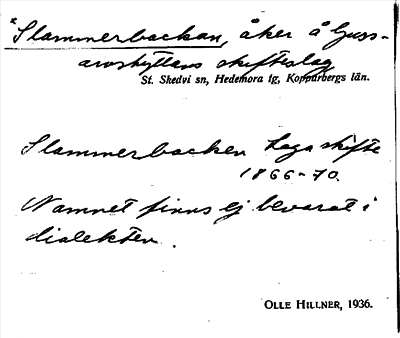 *Slammerbackan, åker å Ljuss-
arvshyttans skifteslag
St. Skedvi sn, Hedemora tg, Kopparbergs län.
Slammerbacken Laga skifte
1866-70.
Namnet finns ej bevarat i
dialekten.
OLLE HILLNER, 1936.